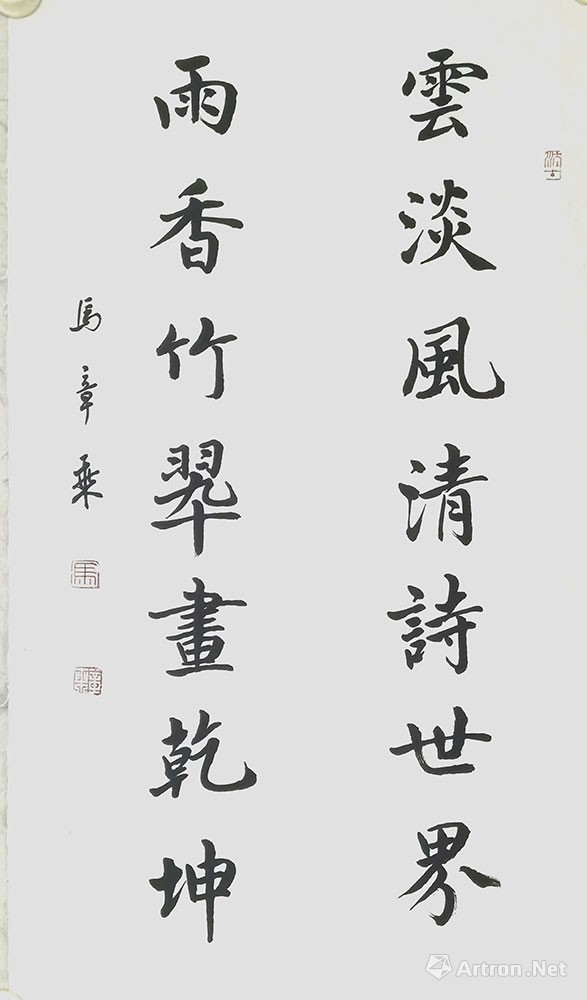 雲淡風清詩世界
雨香竹翠畫乾坤
馬章乘
Artron.Net